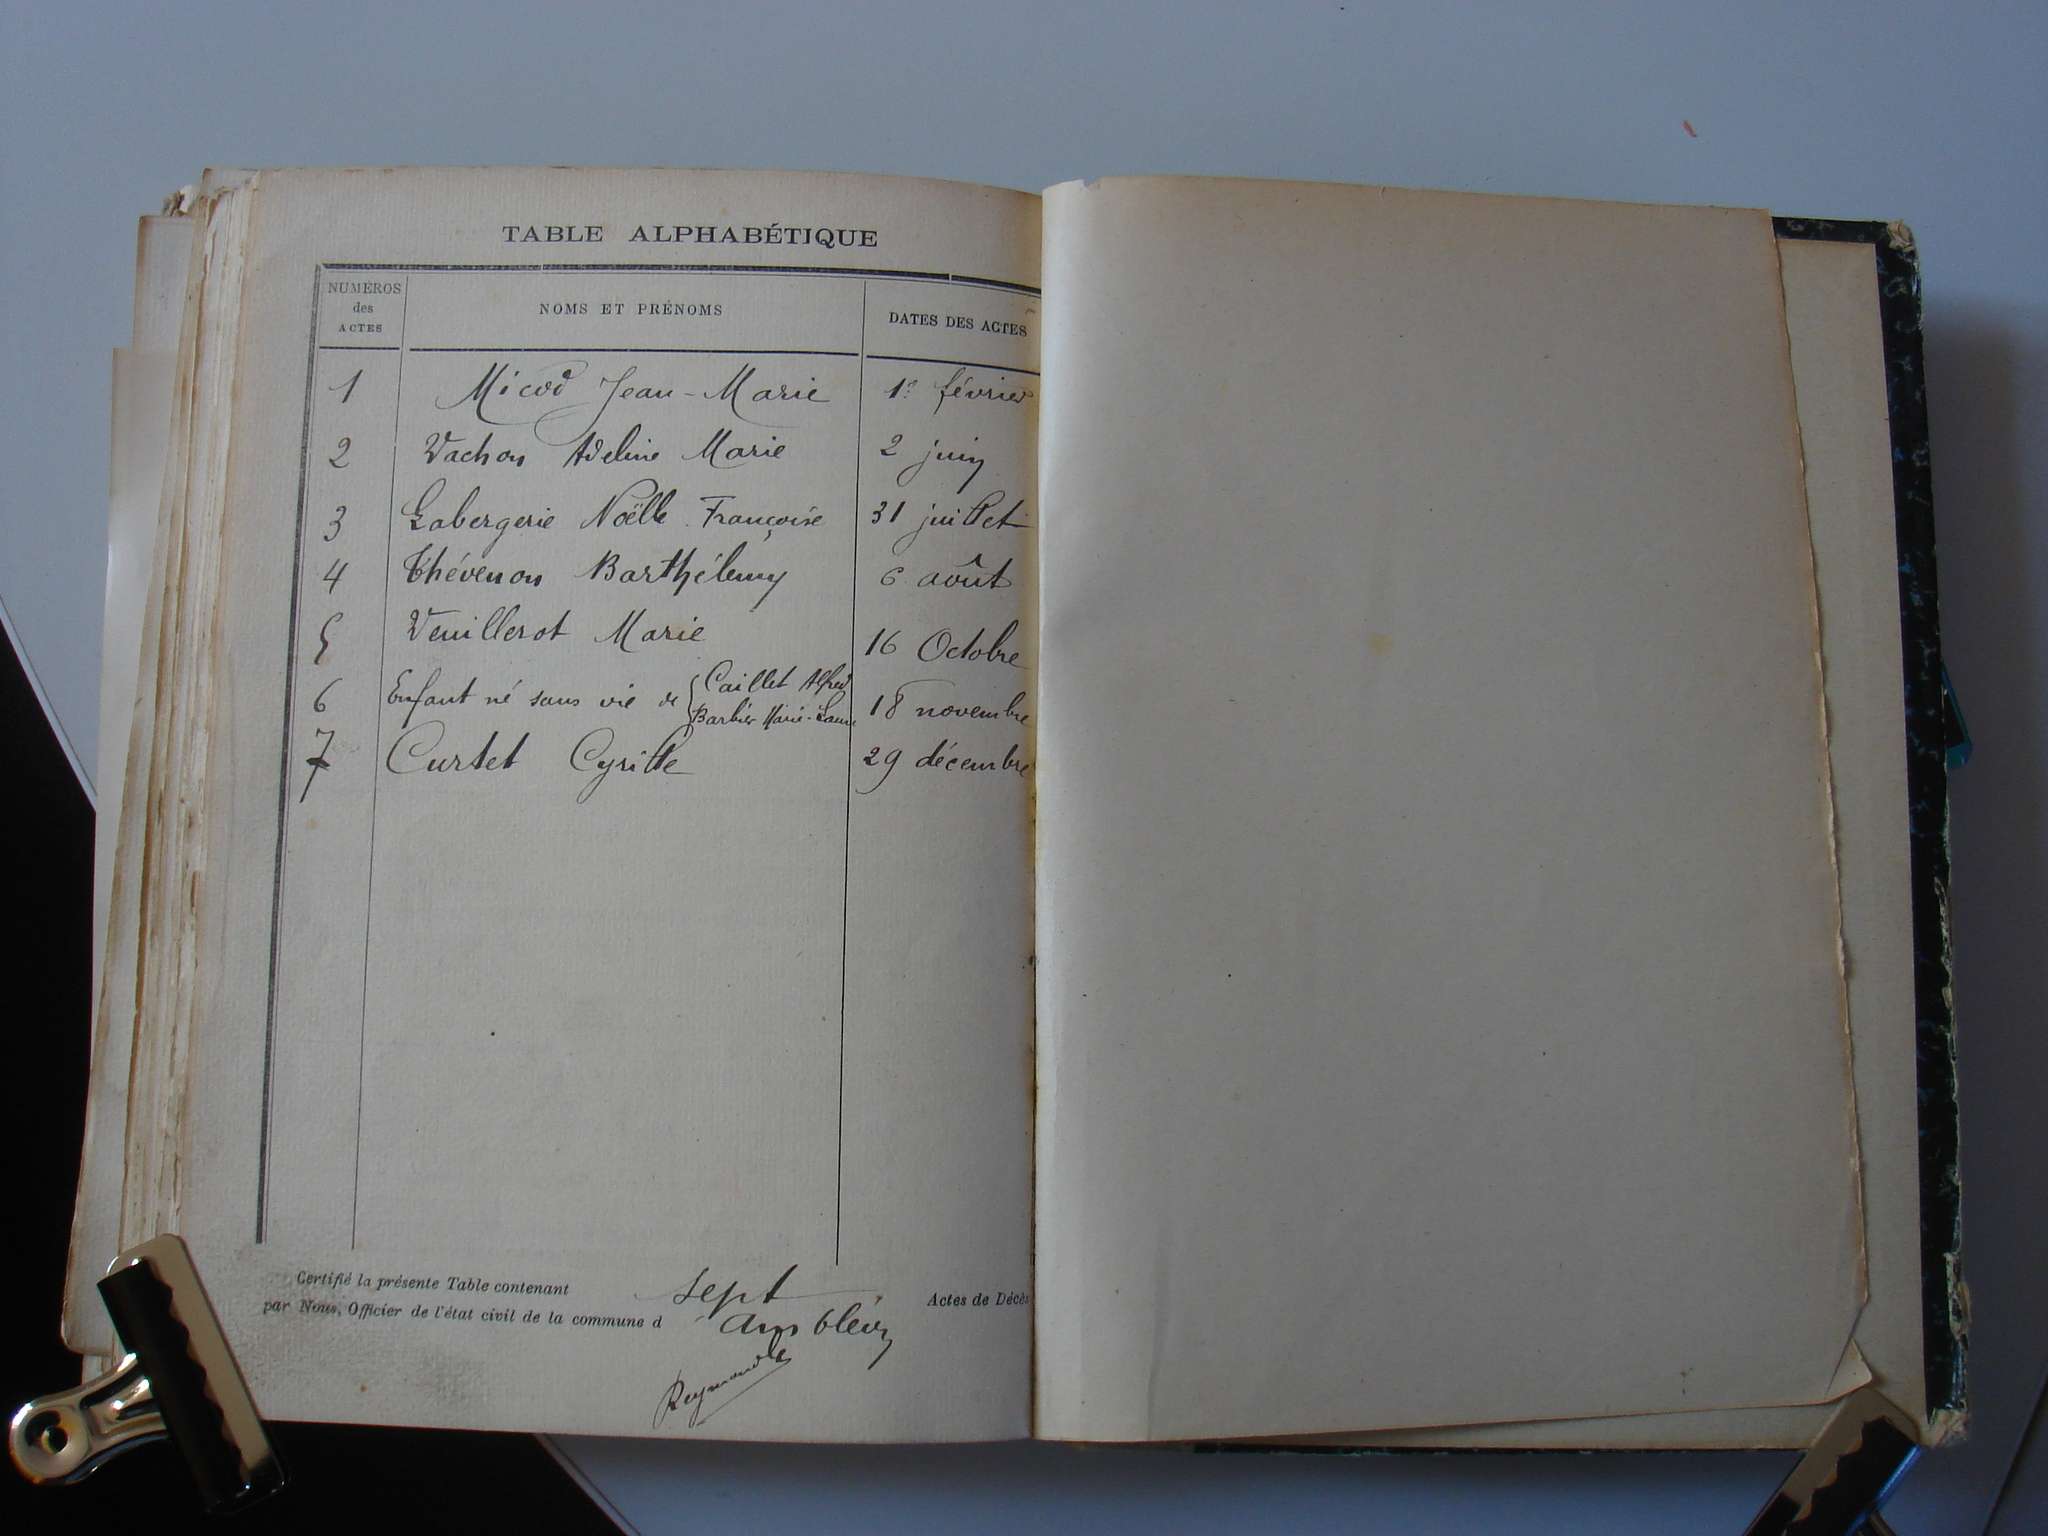 TABLE ALPHABÉTIQUE
NUMÉROS des ACTES NOMS ET PRÉNOMS DATES DES ACTES
1 Micod Jean-Marie 1er février
2 Vachon Adeline Marie 2 juin
3 Labergerie Noëlle Françoise 31 juillet
4 Thévenon Barthélemy 6 août
5 Veuillerot Marie 16 Octobre
6 Enfant né sans vie de { Caillet Alfred
Barbier Marie-Laure 18 novembre
7 Curtet Cyrille 29 décembre
Certifié la présente Table contenant sept Actes de Décès
par Nous, Officier de l'état civil de la commune d Ambléon